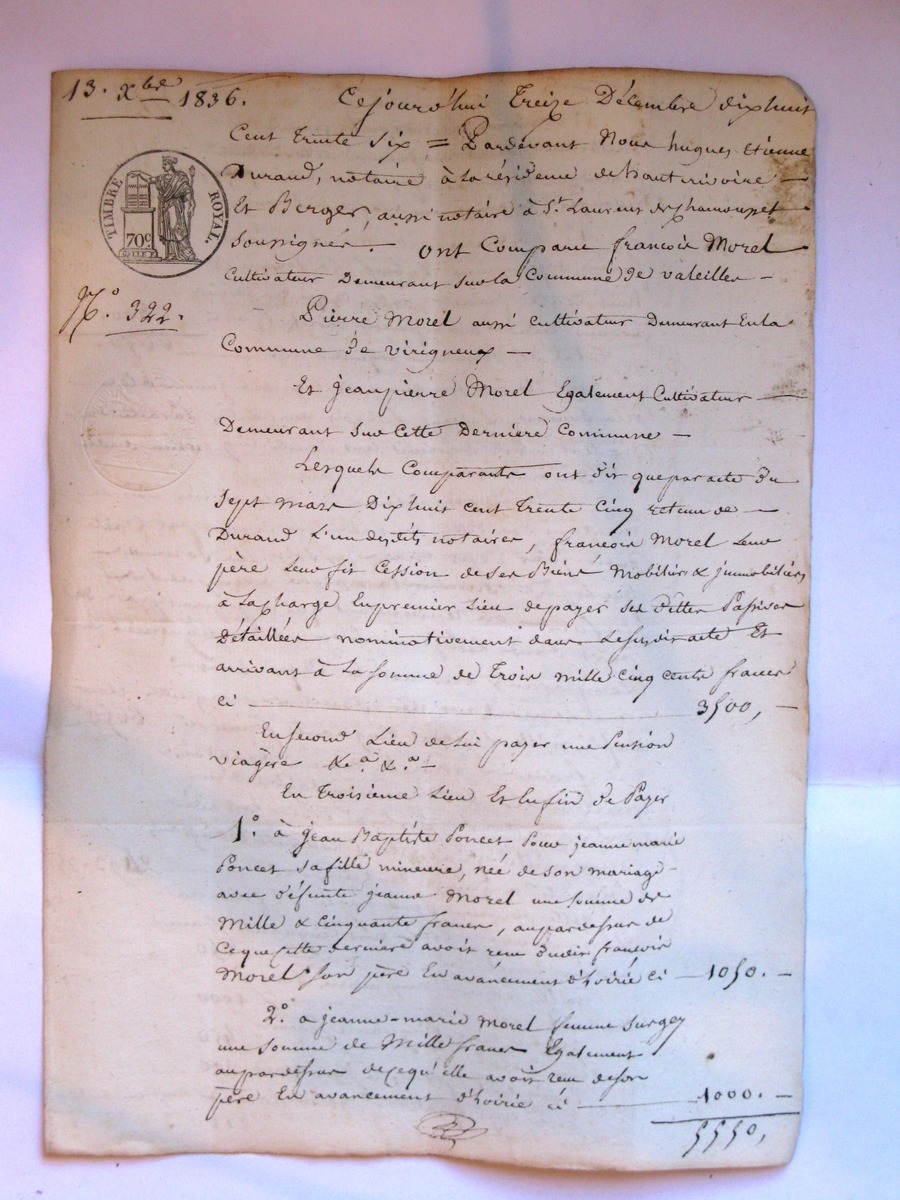 13. Xbre 1836.
Cejourd'hui Treize Décembre dixhuit
Cent trente Six = Pardevant Nous hugues Etienne
Durand, notaire à La résidence de hautrivoire —
Et Berger, aussi notaire à St. Laurent de Chamousset
Soussignés. ont Comparu françois Morel
TIMBRE ROYAL.
70c
Cultivateur Demeurant sur la Commune de valeilles —
No. 322.
Pierre Morel aussi Cultivateur Demeurant En la
Commune de virigneux —
Et jeanpierre Morel Egalement Cultivateur —
Demeurant sur Cette Derniere Commune —
Lesquels Comparants ont dit que par acte du
Sept mars Dixhuit cent trente Cinq retenu de —
Durand L'un desdits notaires, françois Morel Leur
père Leur fit Cession de ses Biens Mobiliers & jmmobiliers
à La charge En premier Lieu de payer ses dettes Passives
Détaillées nominativement dans Le susdit acte Et
arrivant à La somme de Trois mille Cinq cents francs
ci — 3500, —
En second Lieu de Lui payer une Pension
viagère &a. &a. —
En Troisieme Lieu Et Enfin de Payer
1°. à jean Baptiste Poncet Pour jeanne marie
Poncet sa fille mineure, née de son mariage
avec défunte jeanne Morel une somme de
Mille & Cinquante francs, au pardessus de
Ce que Cette derniere avoit reçu dudit françois
Morel son père En avancement d'hoirie ci — 1050. —
2°. à jeanne-marie Morel femme Surgey
une somme de Mille francs Egalement
au pardessus de ce qu'elle avoit reçu de son
père En avancement d'hoirie ci — 1000. —
5550,